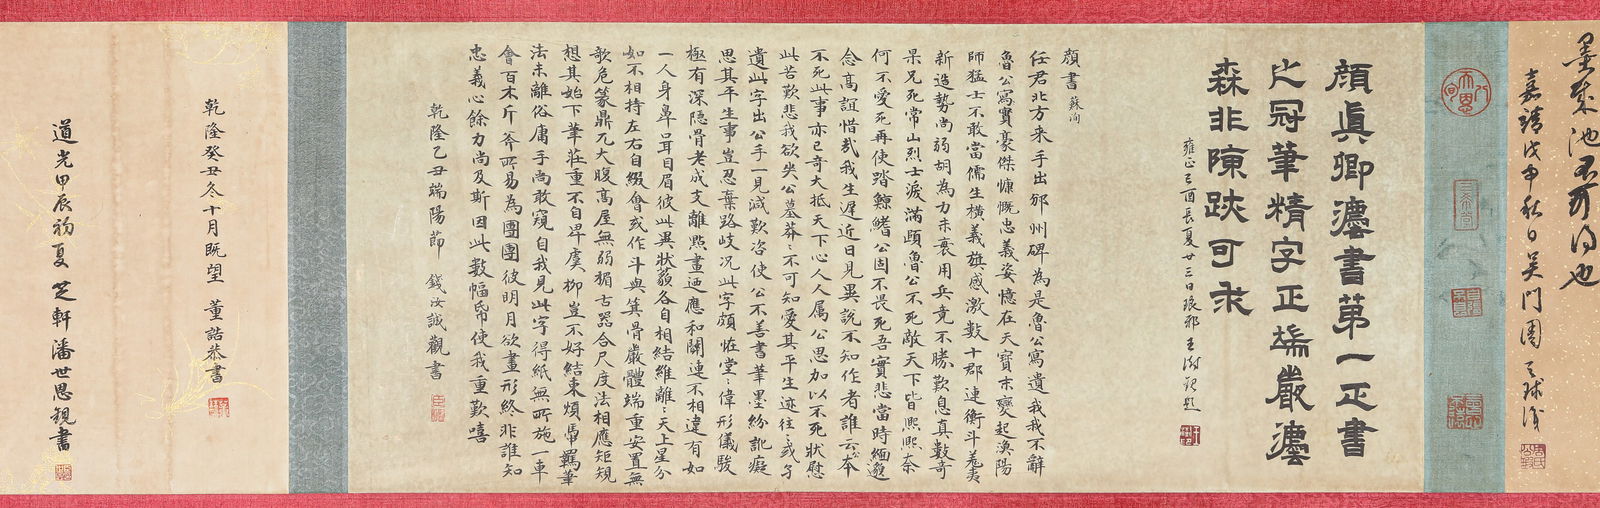 墨戲池不可得也
嘉靖戊申秋日吳門周天球識
顏真卿灋書第一正書
之冠筆精字正端嚴灋
森非陳跡可求
雍正己酉長夏廿三日琅邪王澍觀題
顏書 蘇洵
任君北方來手出邠州碑為是魯公寫遺我我不辭
魯公寫實豪傑慷慨忠義姿憶在天寶末變起漁陽
師猛士不敢當儒生橫義旗感激數十郡連衡鬥羌夷
新造勢尚弱胡為力未衰用兵竟不勝歎息真數奇
杲兄死常山烈士淚滿頤魯公不死敵天下皆熙熙奈
何不愛死再使踏鯨鰭公固不畏死吾實悲當時緬邈
念高誼惜哉我生遲近日見異說不知作者誰云本
不死此事亦已奇大抵天下心人人屬公思加以不死狀慰
此苦歎悲我欲哭公墓莽莽不可知愛其平生迹往往或孑
遺此字出公手一見減歎咨使公不善書筆墨紛訛癡
思其平生事豈忍棄路岐況此字頗恠堂堂偉形儀駿
極有深隱骨老成支離點畫迺應和關連不相違有如
一人身鼻口耳目眉彼此異狀藐各自相結維離離天上星分
如不相持左右自綴會或作斗與箕骨嚴體端重安置無
歌危篆鼎兀大腹高屋無弱楣古器合尺度法相應矩規
想其始下筆莊重不自卑虞柳豈不好結束煩馽羈筆
法未離俗庸手尚敢窺自我見此字得紙無所施一車
會百木斤斧所易為團團彼明月欲畫形終非誰知
忠義心餘力尚及斯因此數幅帋使我重歎嘻
乾隆乙丑端陽節 錢汝誠觀書
乾隆癸丑冬十月既望 董誥恭書
道光甲辰初夏 芝軒潘世恩觀書